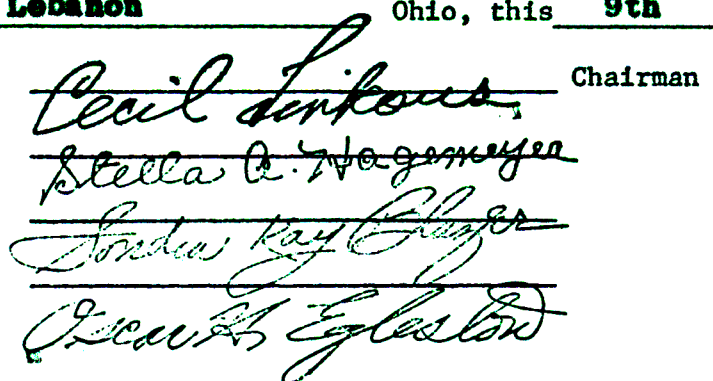 Lebanon Ohio, this 9th
Cecil Linkous Chairman
Stella A. Hagemeyer
Kay
Oscar H. Egleston